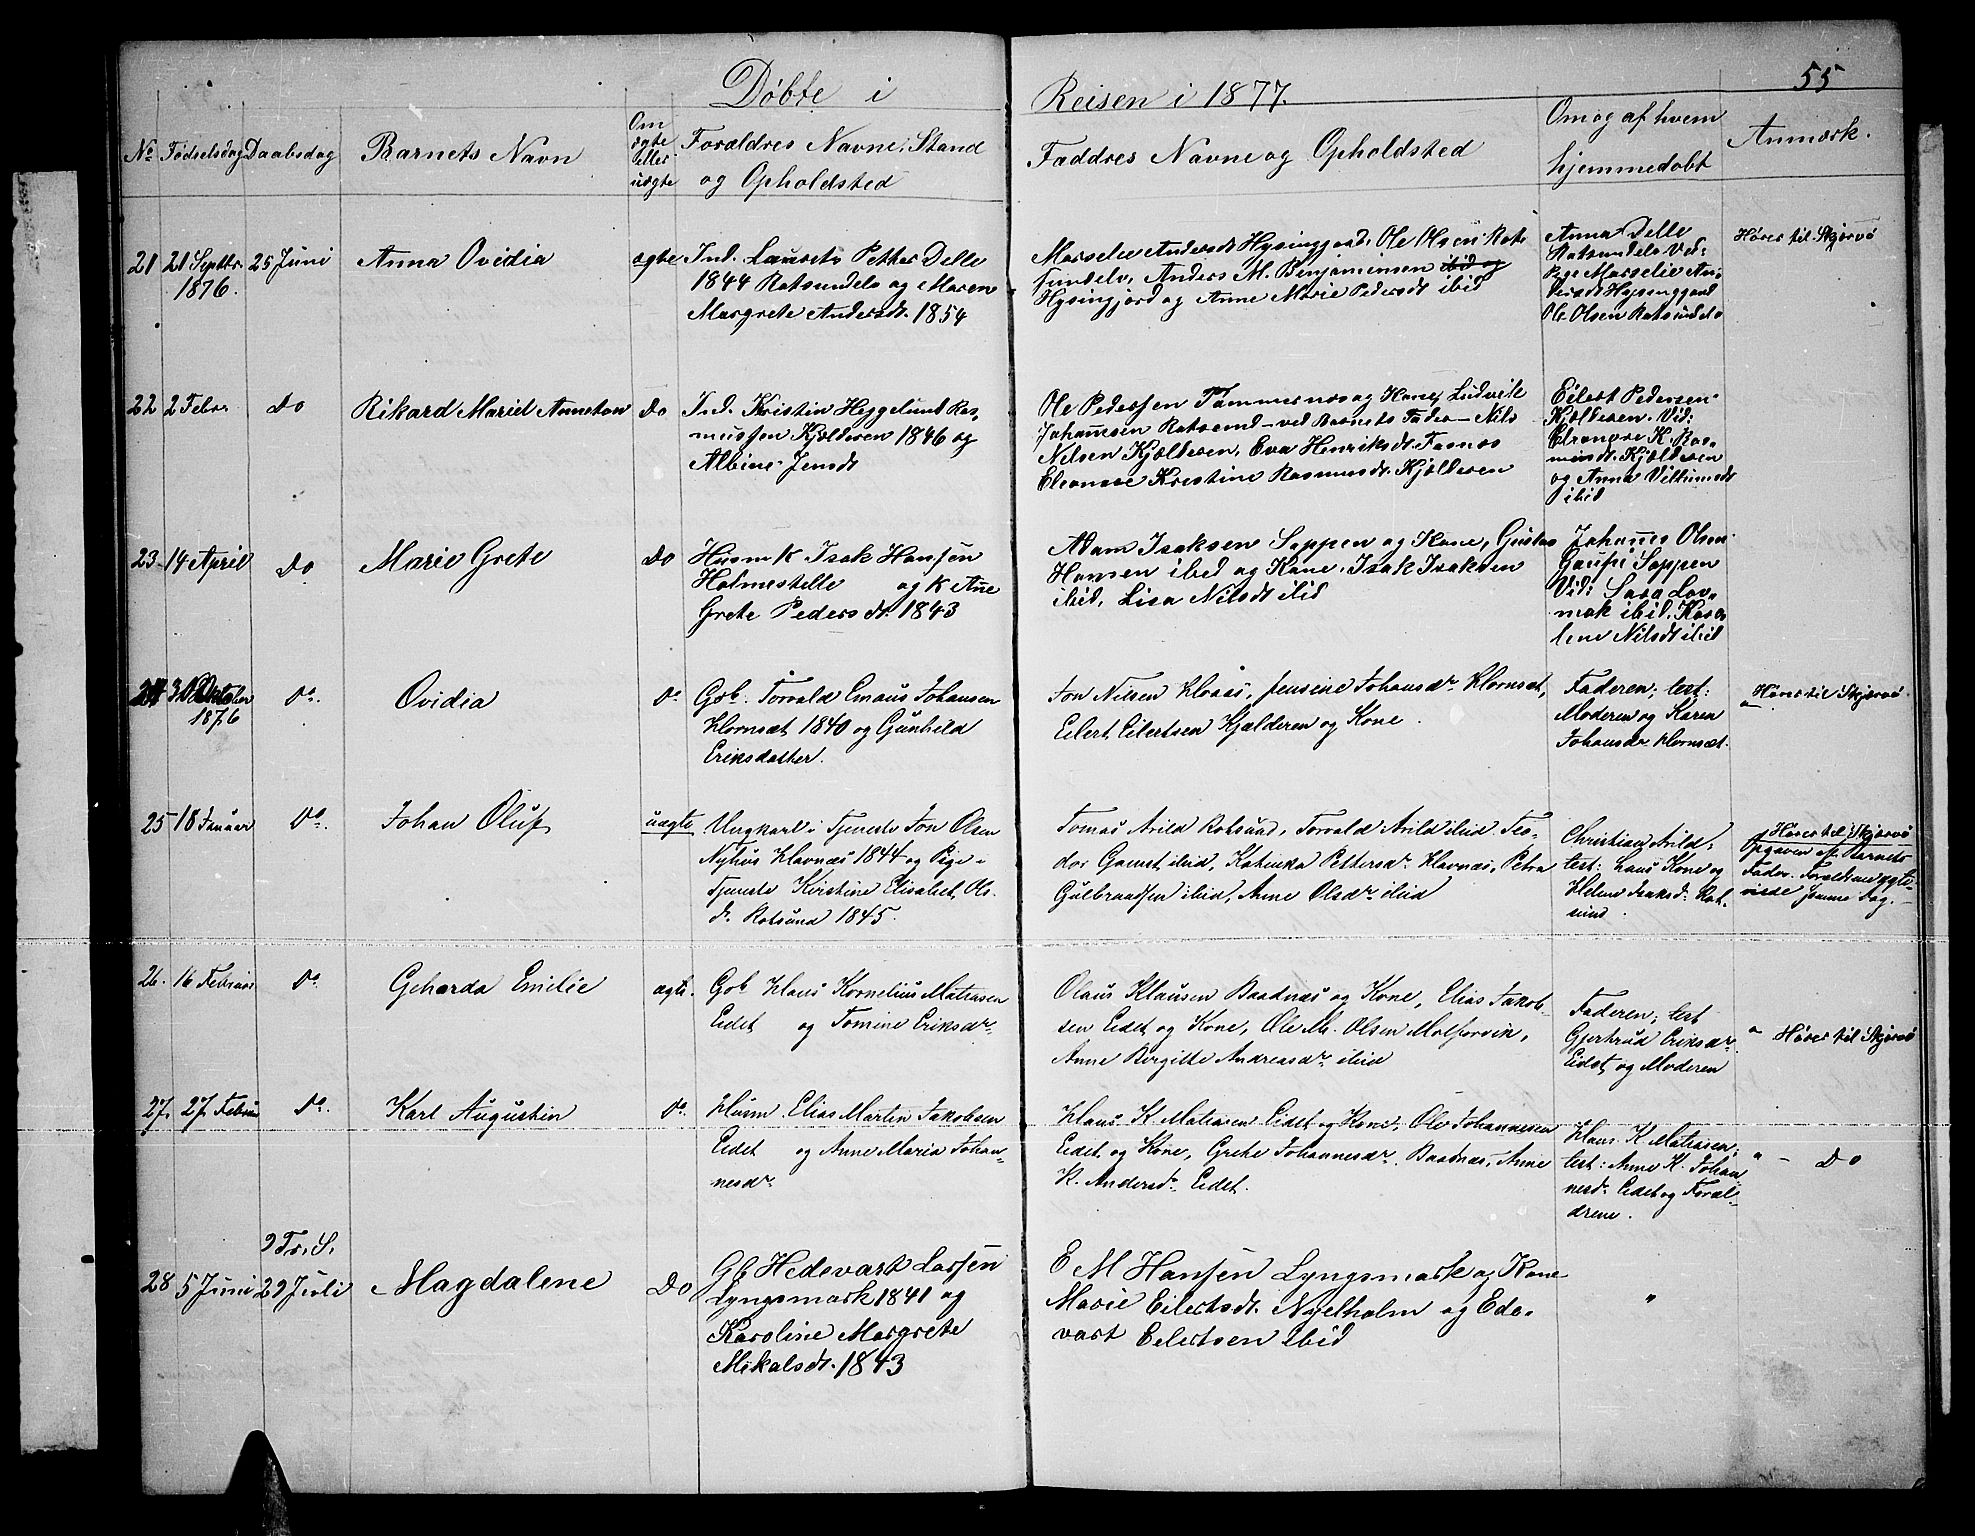 Døbte i Reisen i 1877. 55
No Fødselsdag Daabsdag Barnets Navn Om ægte eller uægte Foræld­res Navne, Stand og Opholdsted Faddres Navne og Opholdsted Om og af hvem hjemmedøbt Anmærk.
21 21 Septbr. 1876. 25 Juni Anna Ovidia ægte
Ind. Laurets Petter Delle
1844 Rotsundelv og Maren
Margrete Andersdt. 1854
Marselie Andersdt Hysingjord, Ole Olsen Rot-
sundelv, Anders M. Benjaminsen ibid og
Hysingjord og Anne Marie Pedersdt ibid
Anna Delle
Rotsundelv Vid:
Pige Marselie An-
dersdt Hysingjord
Ole Olsen Rotsundelv
Hører til Skjervö
22 2 Febr. Do Rikard Mariel Anneton Do
Ind. Kristin Heggelund Ras-
mussen Kjælderen 1846 og
Albine Jensdt
Ole Pedersen Tømmernes og Kone, Ludvik
Johannesen Rotsund - ved Barnets Fader - Nils
Nilsen Kjælderen, Eva Henriksdt.
Eleonore Kristine Rasmusdt. Kjælderen
Eilert Pedersen
Kjælderen. Vid:
Eleonore K. Ras-
musdt. Kjælderen
og Anna
ibid
23 14 April Do Marie Grete Do
Husm K Isak Hansen
Holmestelle og K Ane
Grete Pedersdt. 1843
Adam Isaksen Sappen og Kone, Gustav
Hansen ibid og Kone, Isak Isaksen
ibid, Lisa Nilsdt ibid
Johannes Olsen
Gaupi Sappen
Vid: Sara Lov-
mak ibid, Karo-
line Nilsdt ibid
24 30 Oktober 1876 Do. Ovidia Do
Gbr. Torvald Emaus Johansen
Hornsæt 1840 og Gunhild
Eriksdatter.
Jon Nilsen Havnæs, Jensine Johansdr. Hornsæt,
Eilert Eilertsen Kjælderen og Kone.
Faderen; test:
Moderen og Karen
Johansdr. Hornsæt.
Hører til Skjervö
25 18 Januar Do. Johan Oluf uægte
Ungkarl i Tjeneste Jon Olsen
Nyhus Havnæs 1844 og Pige i
Tjeneste Kirstine Elisabet Ols.
dr. Rotsund 1845.
Tomas Arild Rotsund, Torvald Arild ibid, Teo-
dor Gamst ibid, Katinka Pettersdr. Havnæs, Petra
Gulbrandsen ibid, Anne Olsdr. ibid
Christian Arild;
test: hans Kone og
Helene Isaksd: Rot-
sund.
Hører til Skjervö
Opgaven af Barnets
Fader. Forældrene ægte-
viede samme Dag.
26. 16 Februar Do. Geharda Emilie ægte.
Gbr Hans Kornelius Matiasen
Eidet og Tomine Eriksdr.
Olaus Klausen Baadnæs og Kone, Elias Jakob-
sen Eidet og Kone, Ole M. Olsen Molforvik,
Anne Birgitte Andreasdr. ibid
Faderen; test
Gjertrud Eriksdr.
Eidet og Moderen
" Hører til Skjervö
27. 27 Februar Do. Karl Augustin Do.
Husm. Elias Martin Jakobsen
Eidet og Anne Maria Johan-
nesdr.
Hans K. Matiasen Eidet og Kone, Ole Johannesen
Eidet og Kone, Grete Johannesdr. Baadnæs, Anne
K. Andersdr. Eidet.
Hans K. Matiasen;
test: Anne K. Johan-
nesdr. Eidet og Foræl-
drene.
" - Do
28 5 Juni 9 Tr. S. 29 Juli Magdalene Do
Gb Hedevart Larsen
Lyngsmark 1841 og
Karoline Margrete
Mikalsdt. 1843
E M Hansen Lyngsmark og Kone
Marie Eilertsdt. Nyelholm og Ede-
vart Eilertsen ibid
"